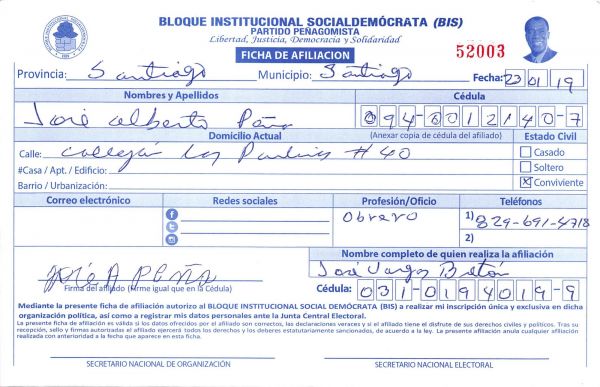 BLOQUE INSTITUCIONAL SOCIALDEMÓCRATA (BIS)
PARTIDO PEÑAGOMISTA
Libertad, Justicia, Democracia y Solidaridad
FICHA DE AFILIACION
52003
Provincia: Santiago Municipio: Santiago Fecha: 23 01 19
Nombres y Apellidos Cédula
José Alberto Peña 094-0012140-7
Domicilio Actual (Anexar copia de cédula del afiliado) Estado Civil
Calle: Callejón Los #40 Casado
#Casa / Apt. / Edificio: Soltero
Barrio / Urbanización: X Conviviente
Correo electrónico Redes sociales Profesión/Oficio Teléfonos
Obrero 1) 829-691-4718
2)
Nombre completo de quien realiza la afiliación
José A Peña José Bretón
Firma del afiliado (Firme igual que en la Cédula) Cédula: 031-0194019-9
Mediante la presente ficha de afiliación autorizo al BLOQUE INSTITUCIONAL SOCIAL DEMÓCRATA (BIS) a realizar mi inscripción única y exclusiva en dicha
organización política, así como a registrar mis datos personales ante la Junta Central Electoral.
La presente ficha de afiliación es válida si los datos ofrecidos por el afiliado son correctos, las declaraciones veraces y si el afiliado tiene el disfrute de sus derechos civiles y políticos. Tras su
recepción, sello y firmas autorizadas el afiliado ejercerá todos los derechos y los deberes estatutariamente sancionados, de acuerdo a la ley. La presente afiliación anula cualquier afiliación
realizada con anterioridad a la fecha que aparece en esta ficha.
SECRETARIO NACIONAL DE ORGANIZACIÓN SECRETARIO NACIONAL ELECTORAL